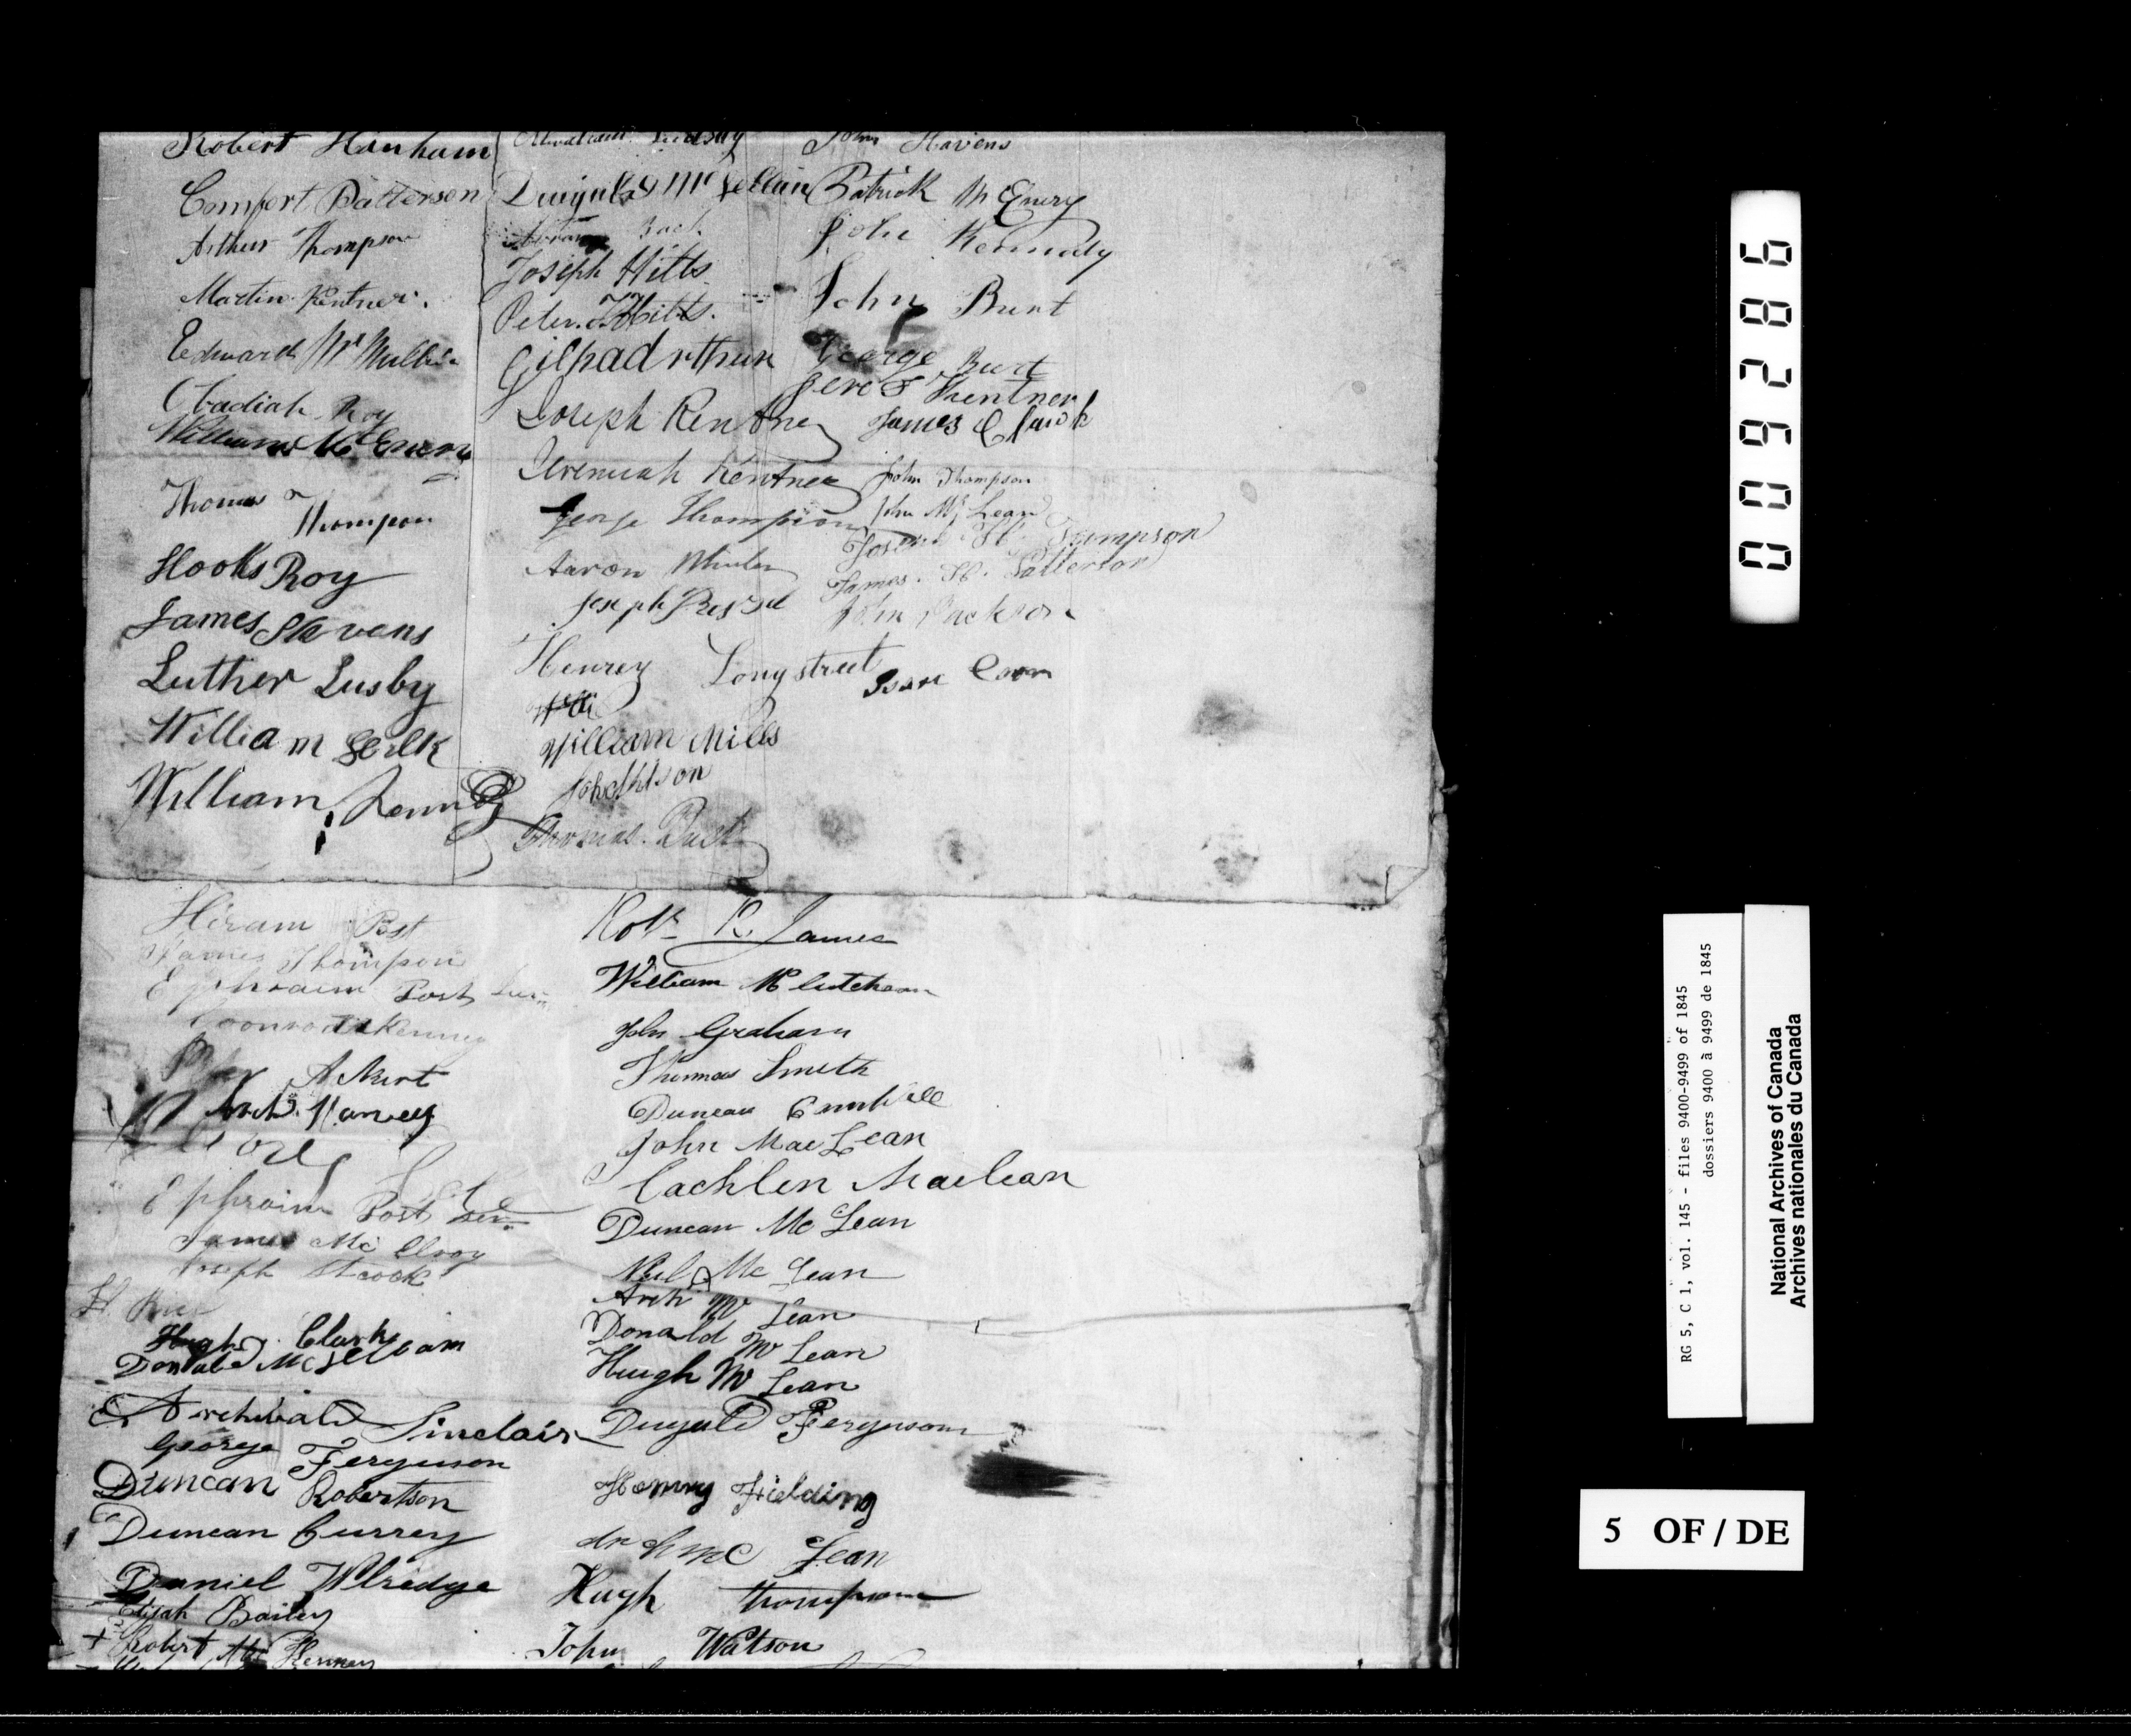 Robert Hanham
Comfort Patterson
Arthur Thompson
Martin Kentner.
Edward Mc Mullin
Obadiah Roy
William McEnery
Thomas Thompson
Hooks Roy
James Stevens
Luther Lusby
William Selk
William Kennedy
Lindsay
Dugald Mc Lellan
Joseph Hitts
Peter Hitts.
Joseph Kentner
Jeremiah Kentner
George Thompson
Aaron
Joseph
Henrey Longstreet
William Mills
Thomas. Burt
John Havens
Patrick McEnery
John Kennedy
John Burt
George Burt
Kentner
James Clark
John Thompson
John Mc Lean
Joseph H. Tompson
James. H. Patterson
John Jackson
Isaac Coon
Hiram Post
James Thompson
Ephraim Post Jun
Ackert
Arch. Harvey
Ephraim Post Sen
James Mc Elroy
Joseph
Hugh Clark
Donald McLean
Archibald Sinclair
George Ferguson
Duncan Robertson
Duncan Currey
Daniel Wlredge
Elijah Bailey
+ Robert Mc Kenney
Robt R. James
William McCutcheon
John Graham
Thomas Smith
Duncan Cambell
John MacLean
Lachlen Maclean
Duncan McLean
Neil McLean
Arch Mc Lean
Donald Mc Lean
Hugh Mc Lean
Dugald Ferguson
Henry Fielding
Lean
Hugh thompson
John Watson
009286
RG 5, C 1, vol. 145 - files 9400-9499 of 1845
dossiers 9400 à 9499 de 1845
National Archives of Canada
Archives nationales du Canada
5 OF / DE